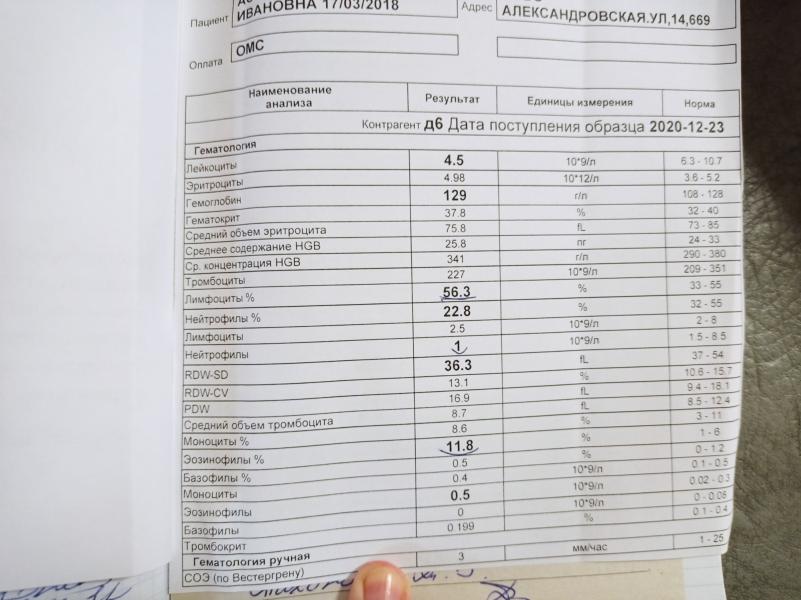 Пациент ИВАНОВНА 17/03/2018 Адрес АЛЕКСАНДРОВСКАЯ.УЛ,14,669
Оплата ОМС
Наименование анализа Результат Единицы измерения Норма
Контрагент д6 Дата поступления образца 2020-12-23
Гематология
Лейкоциты 4.5 10*9/л 6.3 - 10.7
Эритроциты 4.98 10*12/л 3.6 - 5.2
Гемоглобин 129 г/л 108 - 128
Гематокрит 37.8 % 32 - 40
Средний объем эритроцита 75.8 fL 73 - 85
Среднее содержание HGB 25.8 пг 24 - 33
Ср. концентрация HGB 341 г/л 290 - 380
Тромбоциты 227 10*9/л 209 - 351
Лимфоциты % 56.3 % 33 - 55
Нейтрофилы % 22.8 % 32 - 55
Лимфоциты 2.5 10*9/л 2 - 8
Нейтрофилы 1 10*9/л 1.5 - 8.5
RDW-SD 36.3 fL 37 - 54
RDW-CV 13.1 % 10.6 - 15.7
PDW 16.9 fL 9.4 - 18.1
Средний объем тромбоцита 8.7 fL 8.5 - 12.4
Моноциты % 8.6 % 3 - 11
Эозинофилы % 11.8 % 1 - 6
Базофилы % 0.5 % 0 - 1.2
Моноциты 0.4 10*9/л 0.1 - 0.5
Эозинофилы 0.5 10*9/л 0.02 - 0.3
Базофилы 0 10*9/л 0 - 0.06
Тромбокрит 0.199 % 0.1 - 0.4
Гематология ручная
СОЭ (по Вестергрену) 3 мм/час 1 - 25